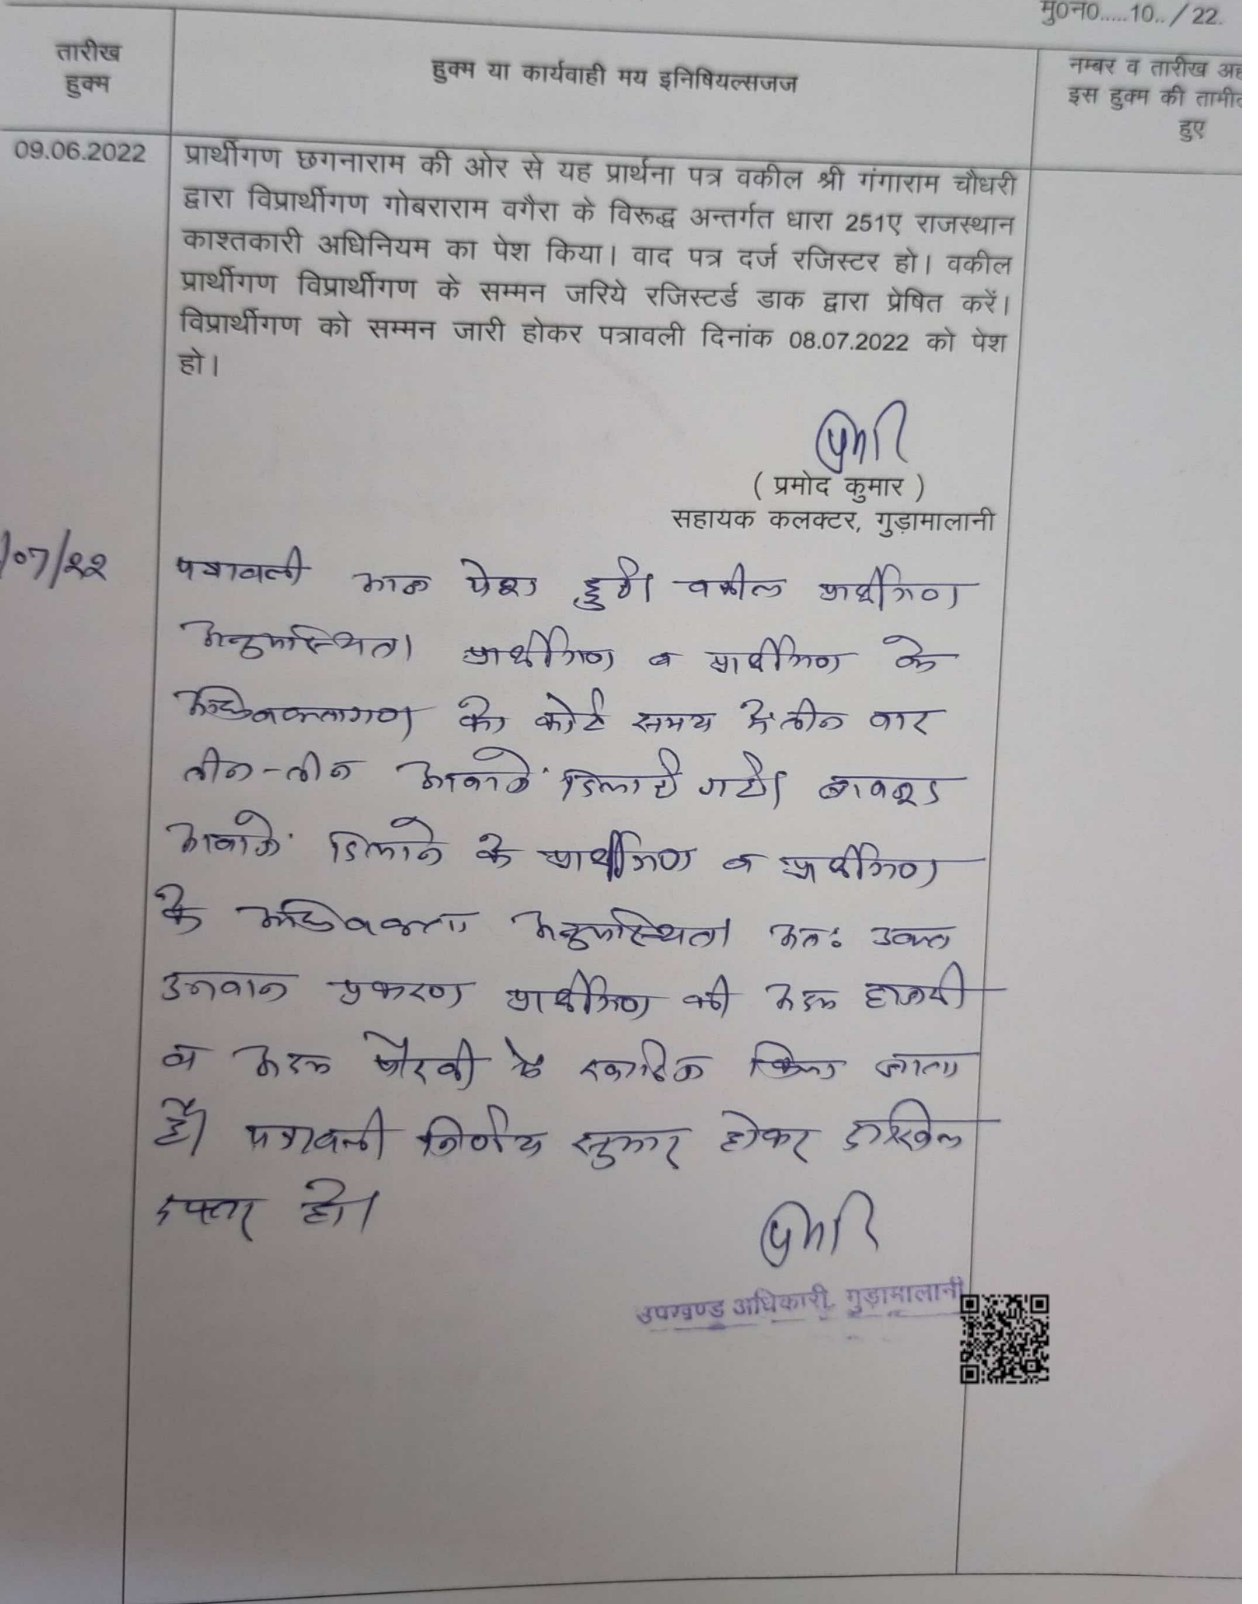 मु0न0.....10../22.
तारीख
हुक्म
हुक्म या कार्यवाही मय इनिषियल्सजज
नम्बर व तारीख
इस हुक्म की
हुए
09.06.2022
प्रार्थीगण छगनाराम की ओर से यह प्रार्थना पत्र वकील श्री गंगाराम चौधरी
द्वारा विप्रार्थीगण गोबराराम वगैरा के विरूद्ध अन्तर्गत धारा 251ए राजस्थान
काश्तकारी अधिनियम का पेश किया। वाद पत्र दर्ज रजिस्टर हो। वकील
प्रार्थीगण विप्रार्थीगण के सम्मन जरिये रजिस्टर्ड डाक द्वारा प्रेषित करें।
विप्रार्थीगण को सम्मन जारी होकर पत्रावली दिनांक 08.07.2022 को पेश
हो।
( प्रमोद कुमार )
सहायक कलक्टर, गुड़ामालानी
/07/22
पत्रावली आज पेश हुई। वकील प्रार्थीगण
अनुपस्थित। प्रार्थीगण व प्रार्थीगण के
अधिवक्तागण को कोर्ट समय में तीन बार
तीन-तीन आवाजें दिलाई गयी। बावजूद
आवाजें दिलाने के प्रार्थीगण व प्रार्थीगण
के अधिवक्ता अनुपस्थित। अतः उक्त
उनवान प्रकरण प्रार्थीगण की अदम हाजरी
व अदम पैरवी में खारिज किया जाता
है। पत्रावली निर्णय सुमार होकर दाखिल
दफ्तर हो।
उपखण्ड अधिकारी, गुड़ामालानी